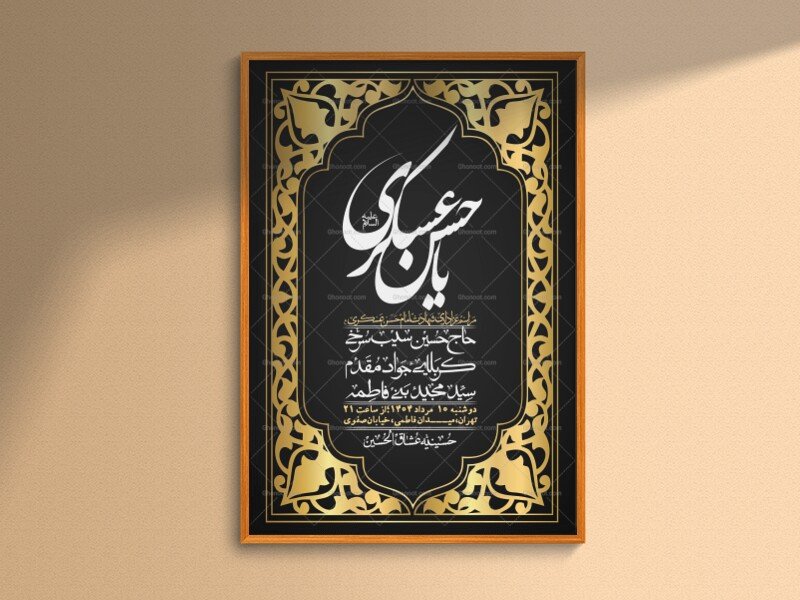 یا حسن عسکری
علیه السلام
مراسم عزاداری شهادت امام حسن عسکری
حاج حسین سیب سرخی
کربلایی جواد مقدم
سید مجید بنی فاطمه
دوشنبه ۱۰ مرداد ۱۴۰۴؛ از ساعت ۲۱
تهران، میدان فاطمی، خیابان صفوی
حسینیه عشاق الحسین
Ghonoot.com